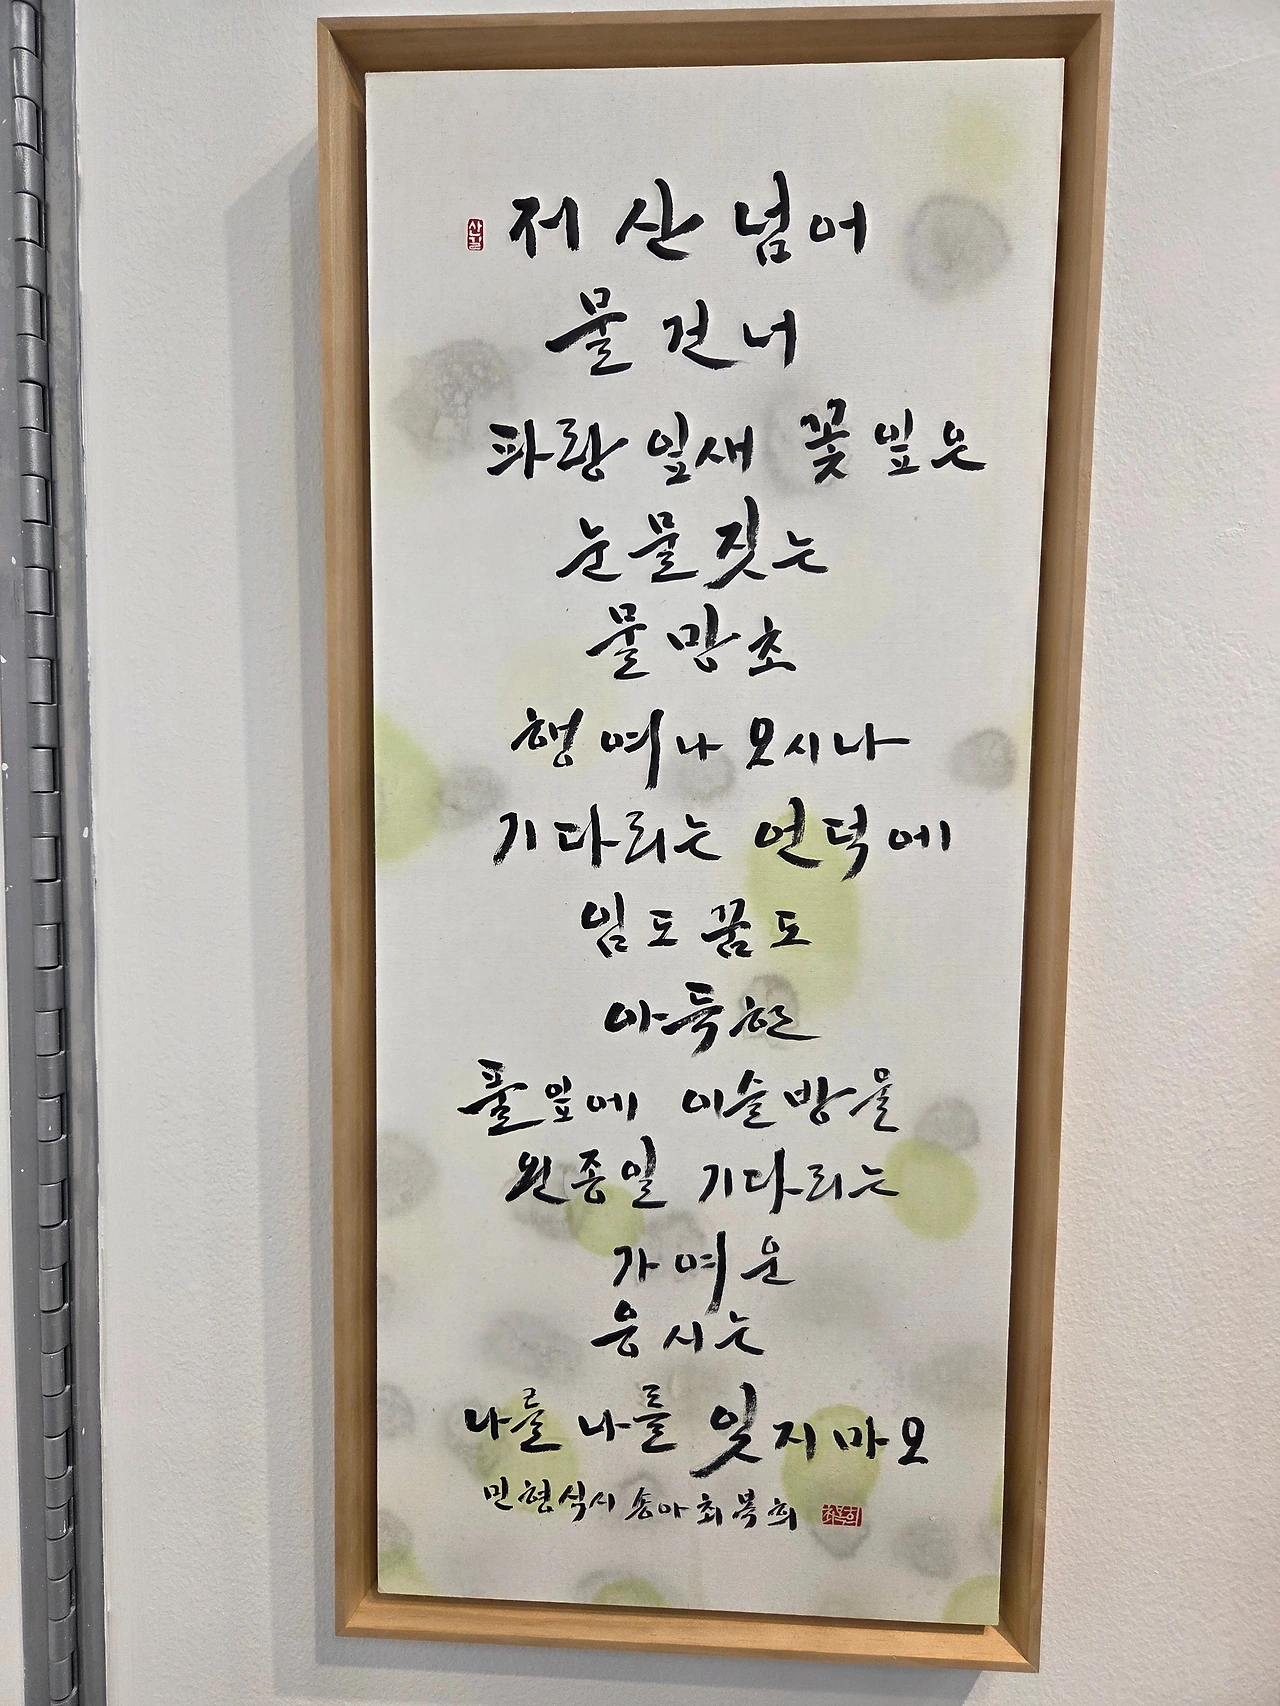 저 산 넘어
물 건너
파랑 잎새 꽃잎은
눈물짓는
물망초
행여나 오시나
기다리는 언덕에
임도 꿈도
아득한
풀잎에 이슬방울
왼종일 기다리는
가여운
응시는
나를 나를 잊지마오
민형식시 송아 최복희